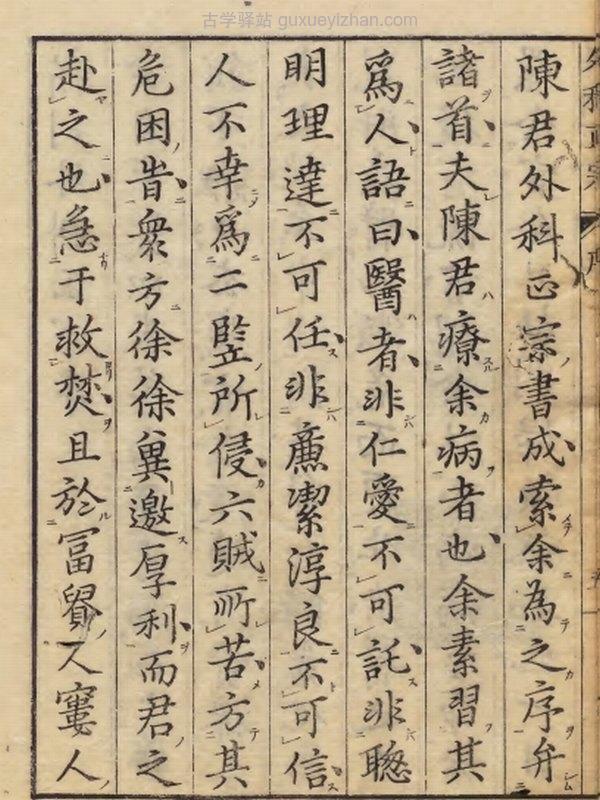 古学驿站 guxueyizhan.com
陳君外科正宗書成索余為之序弁
諸首夫陳君療余病者也余素習其
爲人語曰醫者非仁愛不可託非聦
眀理達不可任非廉潔淳良不可信
人不幸爲二竪所侵六賊所苦方其
危困旹衆方徐徐兾邀厚利而君之
赴之也急于救焚且於冨貴人窶人